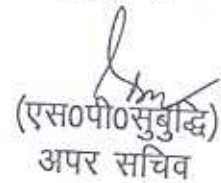 (एस0पी0सुबुद्धि)
अपर सचिव